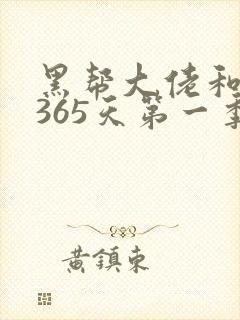 黑帮大佬和
365天第一季
黄鎮東